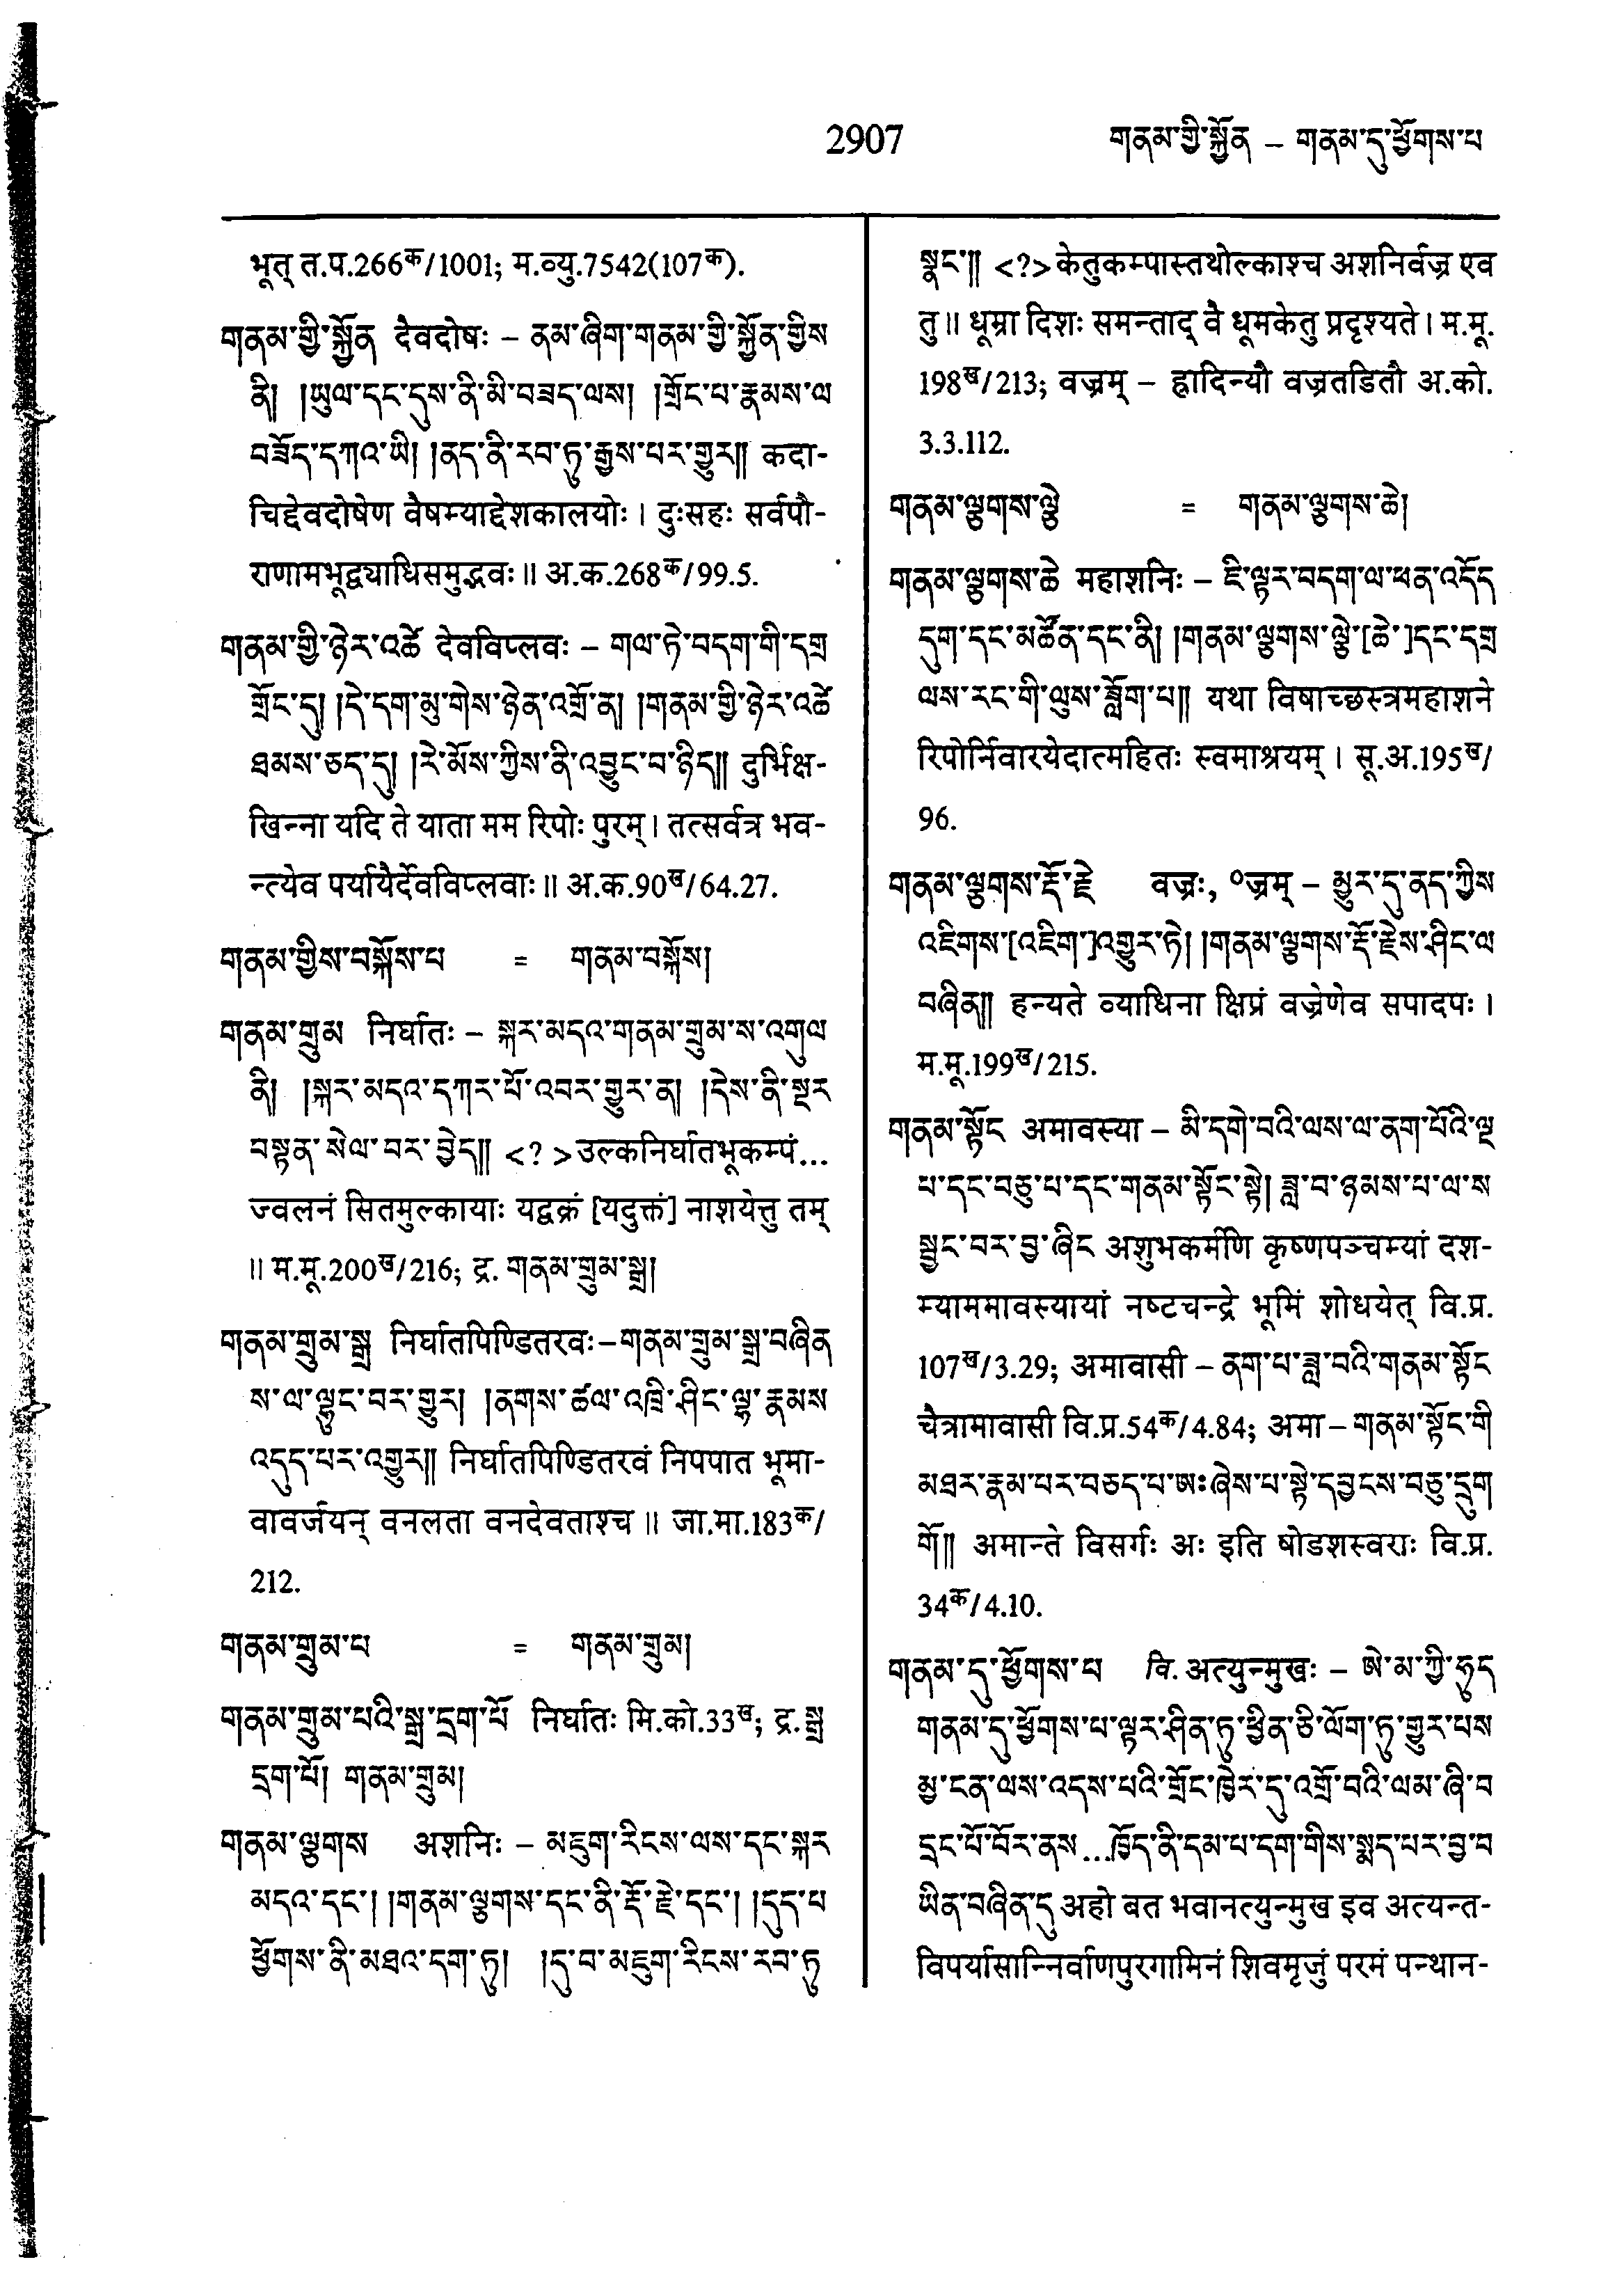 2907
གནམ་གྱི་སྐྱོན – གནམ་དུ་ཕྱོགས་པ
भूत् त.प.266क/1001; म.व्यु.7542(107क).
གནམ་གྱི་སྐྱོན दैवदोषः – ནམ་ཞིག་གནམ་གྱི་སྐྱོན་གྱིས
ནི། །ཡུལ་དང་དུས་ནི་མི་བཟད་ལས། །གྲོང་པ་རྣམས་ལ
བཟོད་དཀའ་ཡི། །ནད་ནི་རབ་ཏུ་རྒྱས་པར་གྱུར༎ कदा-
चिद्दैवदोषेण वैषम्याद्देशकालयोः । दुःसहः सर्वपौ-
राणामभूद्व्याधिसमुद्भवः ॥ अ.क.268क/99.5.
གནམ་གྱི་ཉེར་འཚེ देवविप्लवः – གལ་ཏེ་བདག་གི་དགྲ
གྲོང་དུ། །དེ་དག་མུ་གེས་ཉེན་འགྲོ་ན། །གནམ་གྱི་ཉེར་འཚེ
ཐམས་ཅད་དུ། །རེ་མོས་ཀྱིས་ནི་འབྱུང་བ་ཉིད༎ दुर्भिक्ष-
खिन्ना यदि ते याता मम रिपोः पुरम् । तत्सर्वत्र भव-
न्त्येव पर्यायैर्देवविप्लवाः ॥ अ.क.90ख/64.27.
གནམ་གྱིས་བསྐོས་པ = གནམ་བསྐོས།
གནམ་གྲུམ निर्घातः – སྐར་མདའ་གནམ་གྲུམ་ས་འགུལ
ནི། །སྐར་མདའ་དཀར་པོ་འབར་གྱུར་ན། །དེས་ནི་སྔར
བསྟན་སེལ་བར་བྱེད༎ <? >उल्कनिर्घातभूकम्पं...
ज्वलनं सितमुल्कायाः यद्वक्रं [यदुक्तं] नाशयेत्तु तम्
॥ म.मू.200ख/216; द्र. གནམ་གྲུམ་སྒྲ།
གནམ་གྲུམ་སྒྲ निर्घातपिण्डितरवः–གནམ་གྲུམ་སྒྲ་བཞིན
ས་ལ་ལྷུང་བར་གྱུར། །ནགས་ཚལ་འཁྲི་ཤིང་ལྷ་རྣམས
འདུད་པར་འགྱུར༎ निर्घातपिण्डितरवं निपपात भूमा-
वावर्जयन् वनलता वनदेवताश्च ॥ जा.मा.183क/
212.
གནམ་གྲུམ་པ = གནམ་གྲུམ།
གནམ་གྲུམ་པའི་སྒྲ་དྲག་པོ निर्घातः मि.को.33ख; द्र. སྒྲ
དྲག་པོ། གནམ་གྲུམ།
གནམ་ལྕགས अशनिः – མཇུག་རིངས་ལས་དང་སྐར
མདའ་དང་། །གནམ་ལྕགས་དང་ནི་རྡོ་རྗེ་དང་། །དུད་པ
ཕྱོགས་ནི་མཐའ་དག་ཏུ། །དུ་བ་མཇུག་རིངས་རབ་ཏུ
སྣང་༎ <?>केतुकम्पास्तथोल्काश्च अशनिर्वज्र एव
तु ॥ धूम्रा दिशः समन्ताद् वै धूमकेतु प्रदृश्यते । म.मू.
198ख/213; वज्रम् – ह्रादिन्यौ वज्रतडितौ अ.को.
3.3.112.
གནམ་ལྕགས་ལྕེ = གནམ་ལྕགས་ཆེ།
གནམ་ལྕགས་ཆེ महाशनिः – ཇི་ལྟར་བདག་ལ་ཕན་འདོད
དུག་དང་མཚོན་དང་ནི། །གནམ་ལྕགས་ལྕེ་[ཆེ་]དང་དགྲ
ལས་རང་གི་ལུས་བློག་པ༎ यथा विषाच्छस्त्रमहाशने
रिपोर्निवारयेदात्महितः स्वमाश्रयम् । सू.अ.195ख/
96.
གནམ་ལྕགས་རྡོ་རྗེ वज्रः, ०ज्रम् – མྱུར་དུ་ནད་ཀྱིས
འཇིགས་[འཇིག་]འགྱུར་ཏེ། །གནམ་ལྕགས་རྡོ་རྗེས་ཤིང་ལ
བཞིན༎ हन्यते व्याधिना क्षिप्रं वज्रेणेव सपादपः ।
म.मू.199ख/215.
གནམ་སྟོང अमावस्या – མི་དགེ་བའི་ལས་ལ་ནག་པོའི་ལྔ
པ་དང་བཅུ་པ་དང་གནམ་སྟོང་སྟེ། ཟླ་བ་ཉམས་པ་ལ་ས
སྦྱང་བར་བྱ་ཞིང अशुभकर्मणि कृष्णपञ्चम्यां दश-
म्याममावस्यायां नष्टचन्द्रे भूमिं शोधयेत् वि.प्र.
107ख/3.29; अमावासी – ནག་པ་ཟླ་བའི་གནམ་སྟོང
चैत्रामावासी वि.प्र.54क/4.84; अमा – གནམ་སྟོང་གི
མཐར་རྣམ་པར་བཅད་པ་ཨཿ ཞེས་པ་སྟེ་དབྱངས་བཅུ་དྲུག
གོ༎ अमान्ते विसर्गः अः इति षोडशस्वराः वि.प्र.
34क/4.10.
གནམ་དུ་ཕྱོགས་པ वि. अत्युन्मुखः – ཨེ་མ་ཀྱི་ཧུད
གནམ་དུ་ཕྱོགས་པ་ལྟར་ཤིན་ཏུ་ཕྱིན་ཅི་ལོག་ཏུ་གྱུར་པས
མྱ་ངན་ལས་འདས་པའི་གྲོང་ཁྱེར་དུ་འགྲོ་བའི་ལམ་ཞི་བ
དྲང་པོ་བོར་ནས...ཁྱོད་ནི་དམ་པ་དག་གིས་སྨད་པར་བྱ་བ
ཡིན་བཞིན་དུ अहो बत भवानत्युन्मुख इव अत्यन्त-
विपर्यासान्निर्वाणपुरगामिनं शिवमृजुं परमं पन्थान-